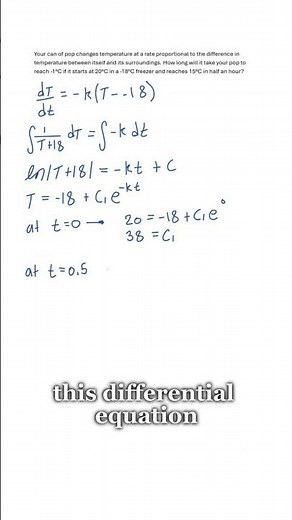 Your can of pop changes temperature at a rate proportional to the difference in
temperature between itself and its surroundings. How long will it take your pop to
reach -1°C if it starts at 20°C in a -18°C freezer and reaches 15°C in half an hour?
dT/dt = -k(T--18)
∫ 1/(T+18) dT = ∫-k dt
ln|T+18| = -kt + C
T = -18 + C₁e^-kt
at t=0 → 20 = -18 + C₁e°
38 = C₁
at t=0.5
this differential
equation